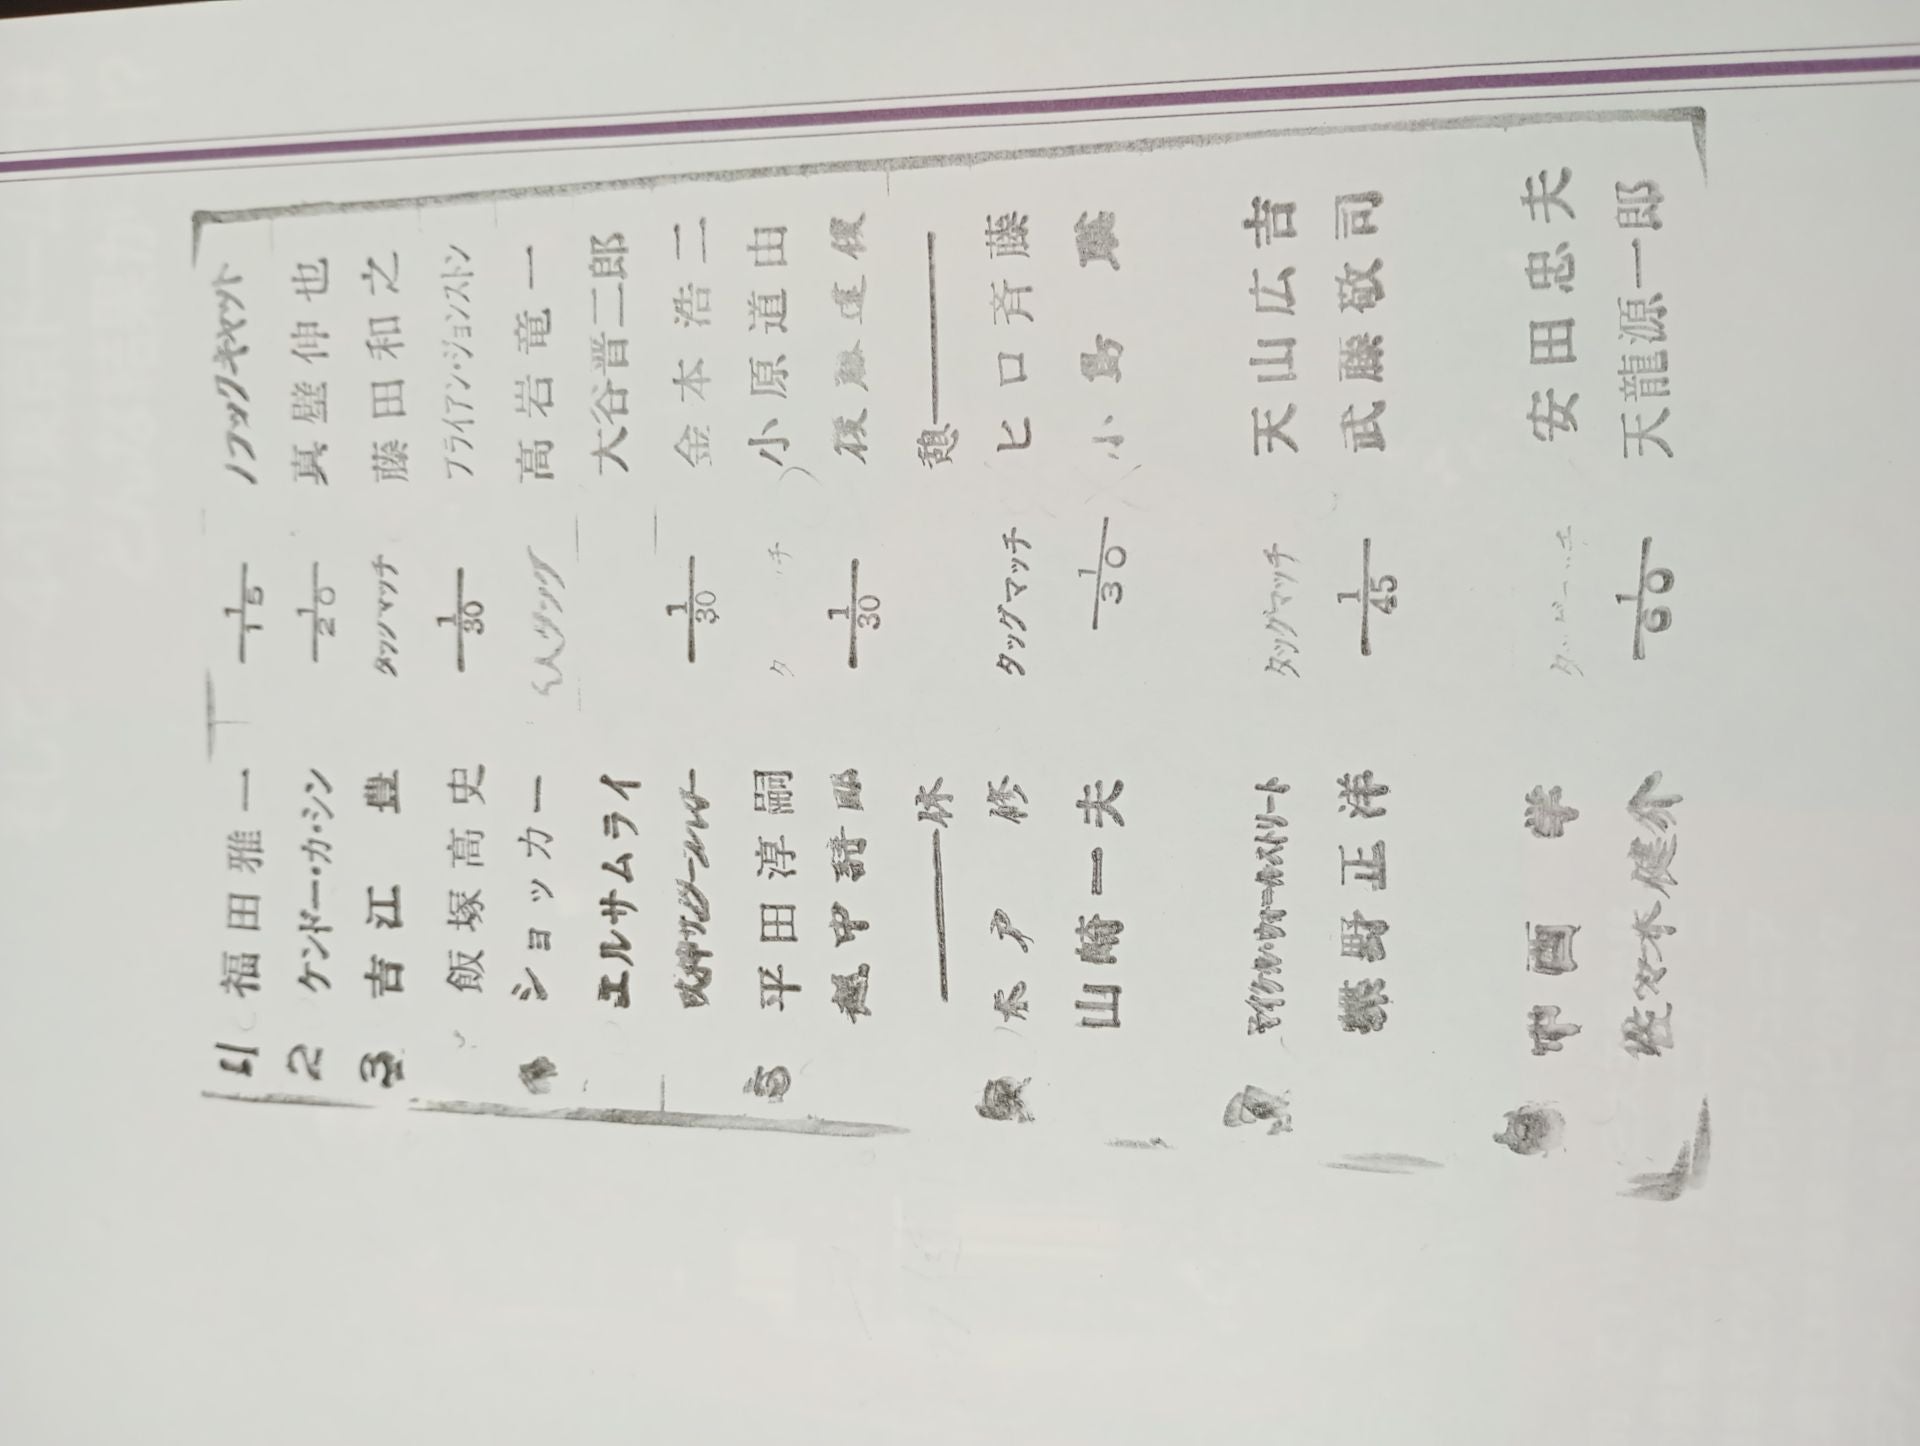 1 福田雅一 1/15 ブラックキャット
2 ケンドー・カ・シン 1/20 真壁伸也
3 吉江豊 タッグマッチ 藤田和之
飯塚高史 1/30 ブライアン・ジョンストン
ショッカー 6人タッグ 高岩竜一
エルサムライ 大谷晋二郎
獣神サンダーライガー 1/30 金本浩二
5 平田淳嗣 小原道由
越中詩郎 1/30 後藤達俊
休 憩
木戸修 タッグマッチ ヒロ斉藤
山崎一夫 1/30 小島聡
マイケル・ウォールストリート タッグマッチ 天山広吉
蝶野正洋 1/45 武藤敬司
中西学 安田忠夫
佐々木健介 1/60 天龍源一郎